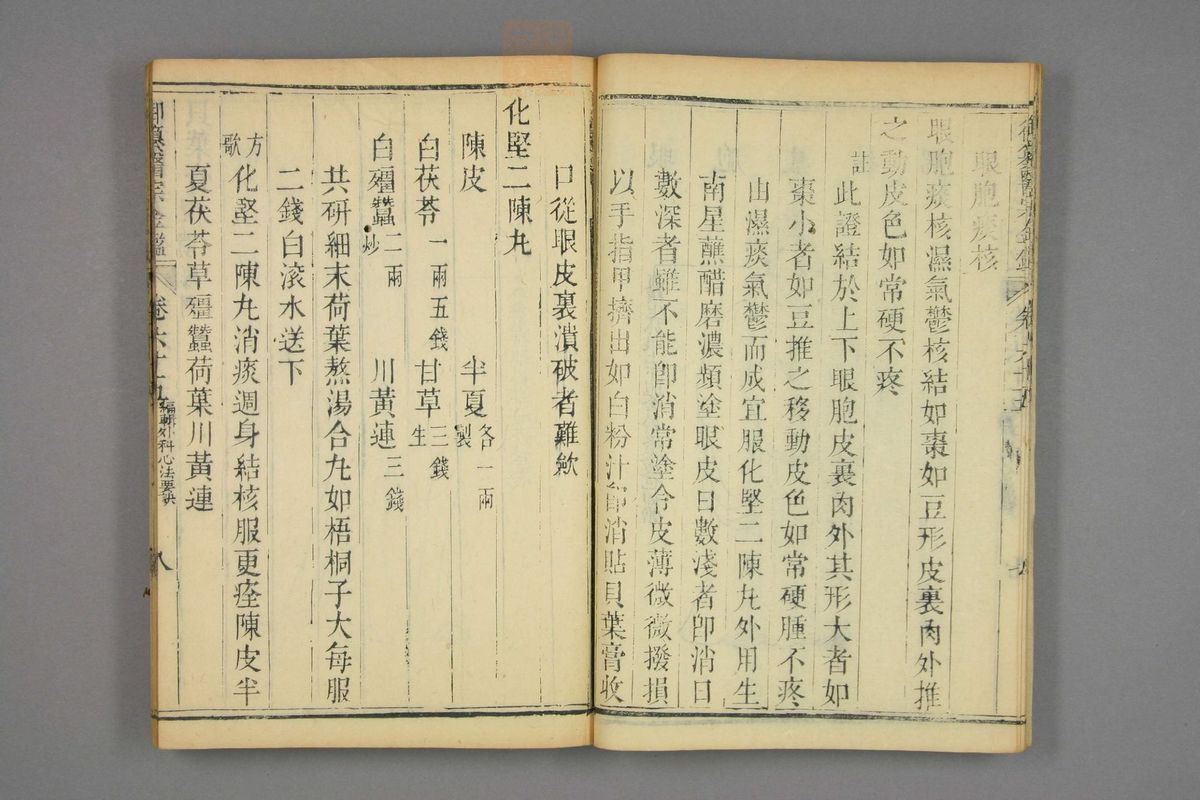 眼胞痰核
眼胞痰核濕氣鬱核結如棗如豆形皮裏肉外推
之動皮色如常硬不疼
註此證結於上下眼胞皮裏肉外其形大者如
棗小者如豆推之移動皮色如常硬腫不疼
由濕痰氣鬱而成宜服化堅二陳丸外用生
南星蘸醋磨濃頻塗眼皮日數淺者卽消日
數深者雖不能卽消常塗令皮薄微微撥損
以手指甲擠出如白粉汁卽消貼貝葉膏收
口從眼皮裏潰破者難歛
化堅二陳丸
陳皮 半夏製各一兩
白茯苓一兩五錢 甘草生三錢
白殭蠶炒二兩 川黃連三錢
共研細末荷葉熬湯合丸如梧桐子大每服
二錢白滾水送下
方歌 化堅二陳丸消痰週身結核服更痊陳皮半
夏茯苓草殭蠶荷葉川黃連
御纂醫宗金鑑 卷六十五 編輯外科心法要訣 八